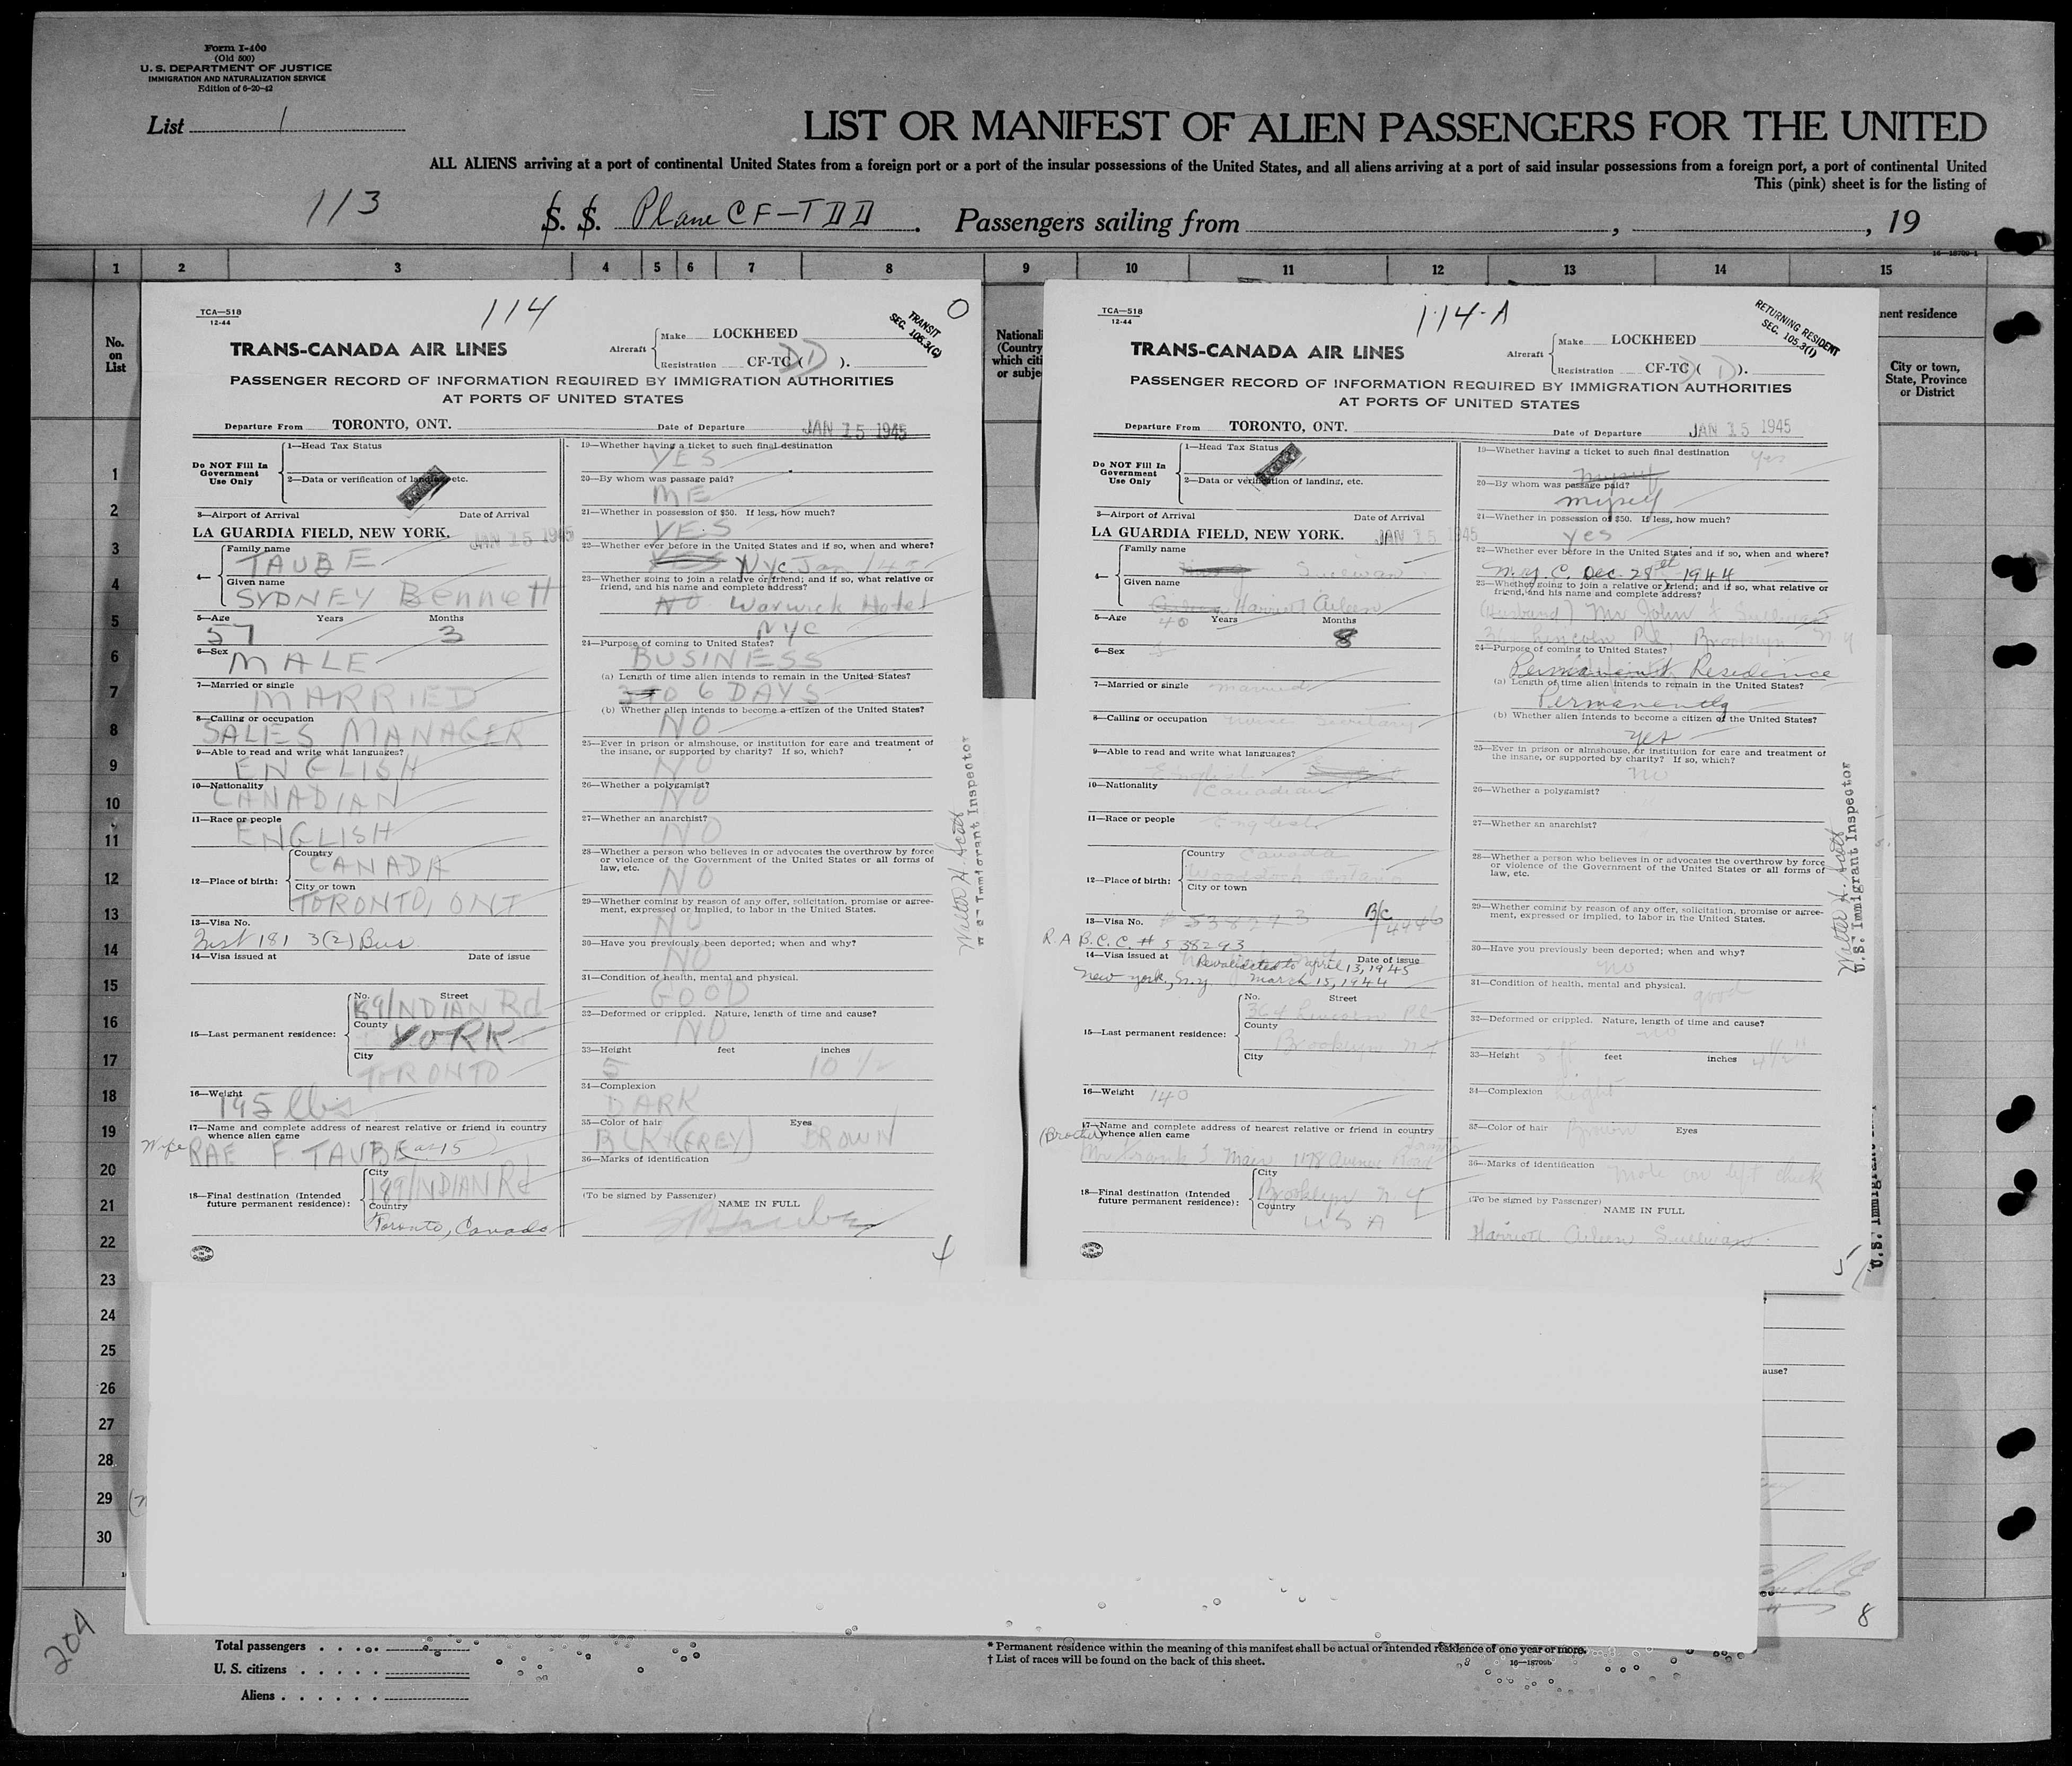 Form I-400
(Old 500)
U. S. DEPARTMENT OF JUSTICE
IMMIGRATION AND NATURALIZATION SERVICE
Edition of 6-20-42
List 1
LIST OR MANIFEST OF ALIEN PASSENGERS FOR THE UNITED
ALL ALIENS arriving at a port of continental United States from a foreign port or a port of the insular possessions of the United States, and all aliens arriving at a port of said insular possessions from a foreign port, a port of continental United
This (pink) sheet is for the listing of
113
S. S. Plane CF-TDD. Passengers sailing from , , 19
1 2 3 4 5 6 7 8 9 10 11 12 13 14 15
No.
on
List
1
2
3
4
5
6
7
8
9
10
11
12
13
14
15
16
17
18
19
20
21
22
23
24
25
26
27
28
29
30
114
O
TCA—518
12-44
TRANSIT
SEC. 105.3(C)
TRANS-CANADA AIR LINES
Aircraft
Make LOCKHEED
Registration CF-TC (DD).
PASSENGER RECORD OF INFORMATION REQUIRED BY IMMIGRATION AUTHORITIES
AT PORTS OF UNITED STATES
Departure From TORONTO, ONT. Date of Departure JAN 15 1945
Do NOT Fill In
Government
Use Only
1—Head Tax Status
2—Data or verification of landing, etc.
3—Airport of Arrival Date of Arrival
LA GUARDIA FIELD, NEW YORK. JAN 15 1945
4—
Family name
TAUBE
Given name
SYDNEY Bennett
5—Age Years Months
57 3
6—Sex
MALE
7—Married or single
MARRIED
8—Calling or occupation
SALES MANAGER
9—Able to read and write what languages?
ENGLISH
10—Nationality
CANADIAN
11—Race or people
ENGLISH
12—Place of birth:
Country
CANADA
City or town
TORONTO, ONT
13—Visa No.
Inst 181 3(2) Bus
14—Visa issued at Date of issue
15—Last permanent residence:
No. Street
189 INDIAN Rd
County
YORK
City
TORONTO
16—Weight
195 lbs
17—Name and complete address of nearest relative or friend in country
whence alien came
Wife RAE F TAUBE (as 15)
18—Final destination (Intended
future permanent residence):
City
189 INDIAN Rd
Country
Toronto, Canada
19—Whether having a ticket to such final destination
YES
20—By whom was passage paid?
ME
21—Whether in possession of $50. If less, how much?
YES
22—Whether ever before in the United States and if so, when and where?
YES NYC Jan 1945
23—Whether going to join a relative or friend; and if so, what relative or
friend, and his name and complete address?
NO Warwick Hotel
NYC
24—Purpose of coming to United States?
BUSINESS
(a) Length of time alien intends to remain in the United States?
6 DAYS
(b) Whether alien intends to become a citizen of the United States?
NO
25—Ever in prison or almshouse, or institution for care and treatment of
the insane, or supported by charity? If so, which?
NO
26—Whether a polygamist?
NO
27—Whether an anarchist?
NO
28—Whether a person who believes in or advocates the overthrow by force
or violence of the Government of the United States or all forms of
law, etc.
NO
29—Whether coming by reason of any offer, solicitation, promise or agree-
ment, expressed or implied, to labor in the United States.
NO
30—Have you previously been deported; when and why?
NO
31—Condition of health, mental and physical.
GOOD
32—Deformed or crippled. Nature, length of time and cause?
NO
33—Height feet inches
5 10 1/2
34—Complexion
DARK
35—Color of hair Eyes
BLK (GREY) BROWN
36—Marks of identification
(To be signed by Passenger) NAME IN FULL
4
Walter H. Scott
U.S. Immigrant Inspector
Nationali
(Country
which citi
or subje
114-A
TCA—518
12-44
RETURNING RESIDENT
SEC. 105.3(1)
TRANS-CANADA AIR LINES
Aircraft
Make LOCKHEED
Registration CF-TC (DD).
PASSENGER RECORD OF INFORMATION REQUIRED BY IMMIGRATION AUTHORITIES
AT PORTS OF UNITED STATES
Departure From TORONTO, ONT. Date of Departure JAN 15 1945
Do NOT Fill In
Government
Use Only
1—Head Tax Status
2—Data or verification of landing, etc.
3—Airport of Arrival Date of Arrival
LA GUARDIA FIELD, NEW YORK. JAN 15 1945
4—
Family name
Sullivan
Given name
Harriet Aileen
5—Age Years Months
40 8
6—Sex
7—Married or single married
8—Calling or occupation Secretary
9—Able to read and write what languages?
English
10—Nationality
Canadian
11—Race or people English
12—Place of birth:
Country Canada
Woodstock Ontario
City or town
13—Visa No. # 538293 B/C 4446
R. A B. C. C. # 538293
14—Visa issued at Revalidated to April 13, 1945 Date of issue
New York, N.y March 15, 1944
15—Last permanent residence:
No. Street
364 Lincoln Pl
County
Brooklyn N Y
City
16—Weight 140
17—Name and complete address of nearest relative or friend in country
(Brother) whence alien came
Mr Frank S. Mair 1178 Avenue Road
18—Final destination (Intended
future permanent residence):
City
Brooklyn N Y
Country
U S A
19—Whether having a ticket to such final destination yes
myself
20—By whom was passage paid?
myself
21—Whether in possession of $50. If less, how much?
yes
22—Whether ever before in the United States and if so, when and where?
N.Y.C. Dec. 28th 1944
23—Whether going to join a relative or friend; and if so, what relative or
friend, and his name and complete address?
(Husband) Mr John F Sullivan
364 Lincoln Pl, Brooklyn N Y
24—Purpose of coming to United States?
Permanent Residence
(a) Length of time alien intends to remain in the United States?
Permanently
(b) Whether alien intends to become a citizen of the United States?
yes
25—Ever in prison or almshouse, or institution for care and treatment of
the insane, or supported by charity? If so, which?
no
26—Whether a polygamist?
27—Whether an anarchist?
28—Whether a person who believes in or advocates the overthrow by force
or violence of the Government of the United States or all forms of
law, etc.
29—Whether coming by reason of any offer, solicitation, promise or agree-
ment, expressed or implied, to labor in the United States.
30—Have you previously been deported; when and why?
no
31—Condition of health, mental and physical.
good
32—Deformed or crippled. Nature, length of time and cause?
no
33—Height 5 ft feet inches 4½"
34—Complexion Light
35—Color of hair Brown Eyes
36—Marks of identification mole on left cheek
(To be signed by Passenger) NAME IN FULL
Harriett Aileen Sullivan
5
Walter H. Scott
U.S. Immigrant Inspector
U.S. Immigrant
nent residence
City or town,
State, Province
or District
ause?
8
204
Total passengers
U. S. citizens
Aliens
* Permanent residence within the meaning of this manifest shall be actual or intended residence of one year or more.
† List of races will be found on the back of this sheet.
16—18709b